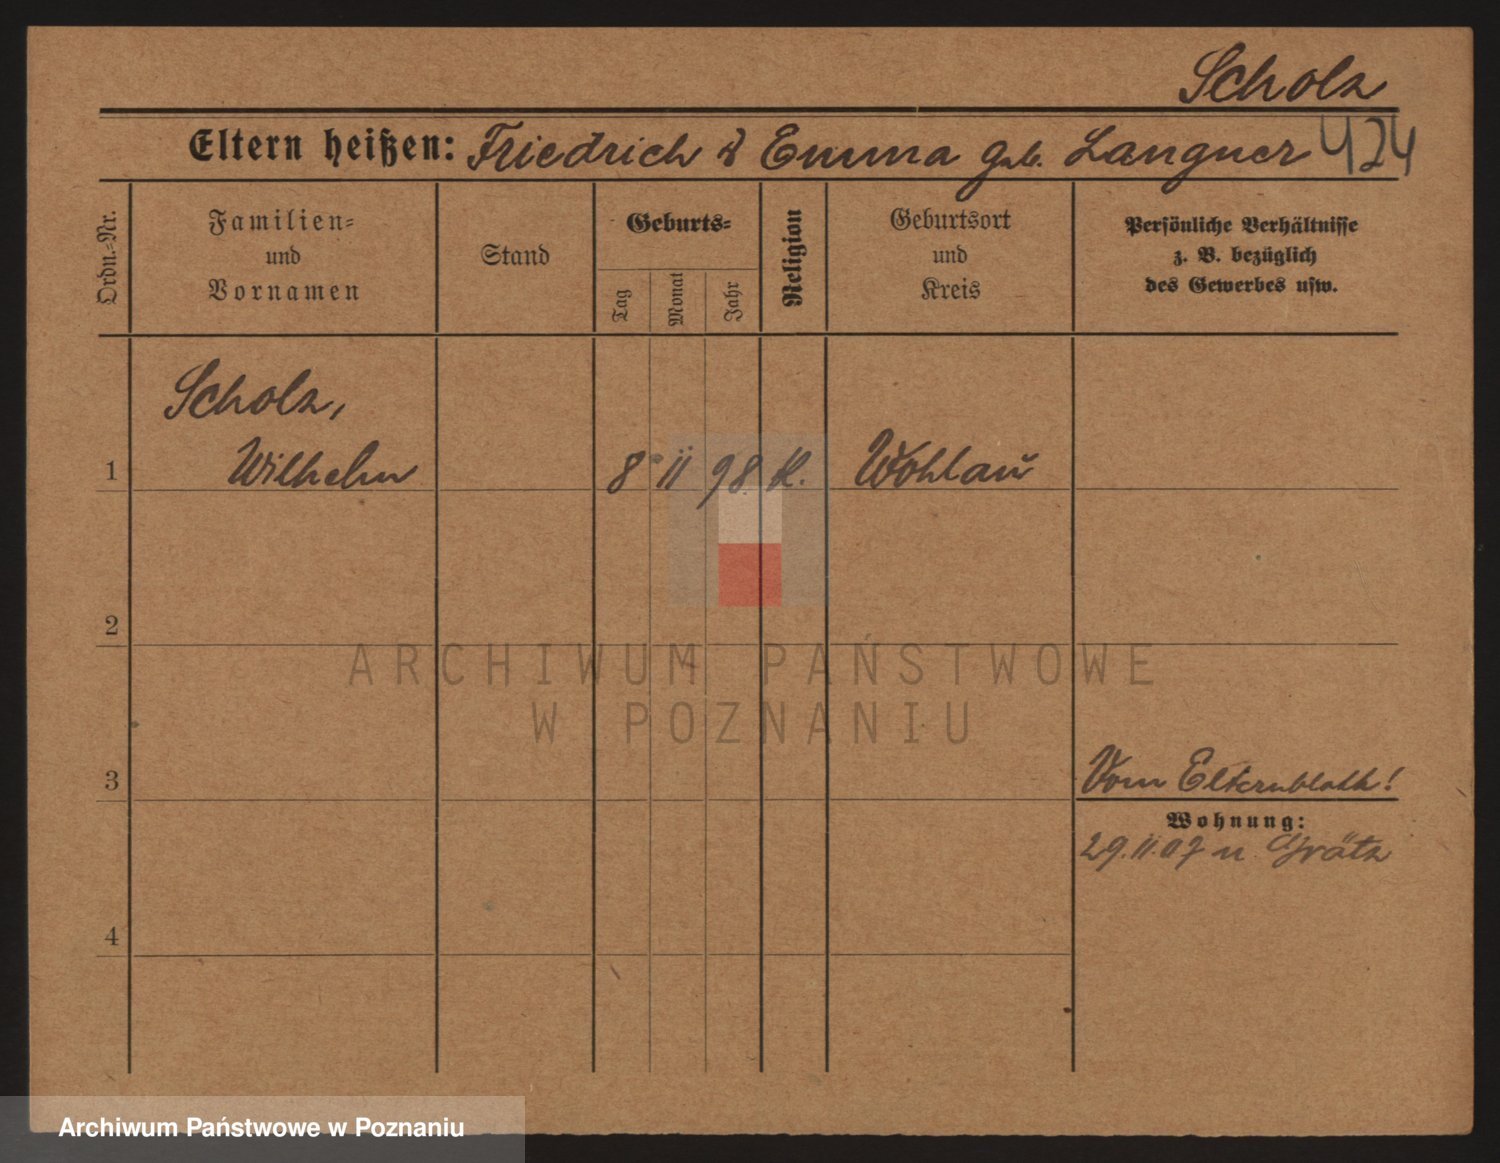 Scholz
Eltern heißen: Friedrich & Emma geb. Langner 424
Ordn.-Nr.
Familien- und Vornamen
Stand
Geburts-
Tag
Monat
Jahr
Religion
Geburtsort und Kreis
Persönliche Verhältnisse
z. B. bezüglich
des Gewerbes usw.
Scholz,
1 Wilhelm 8 11 98. K. Wohlau
2
3
Vom Elternblatt!
Wohnung:
29.11.07 n. Grätz
4
ARCHIWUM PAŃSTWOWE
W POZNANIU
Archiwum Państwowe w Poznaniu